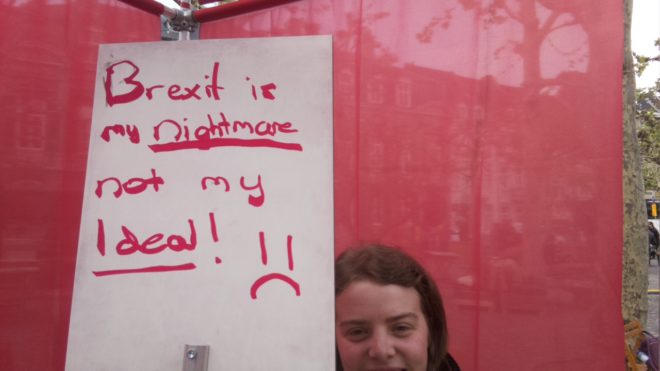 Brexit is
my nightmare
not my
Ideal!